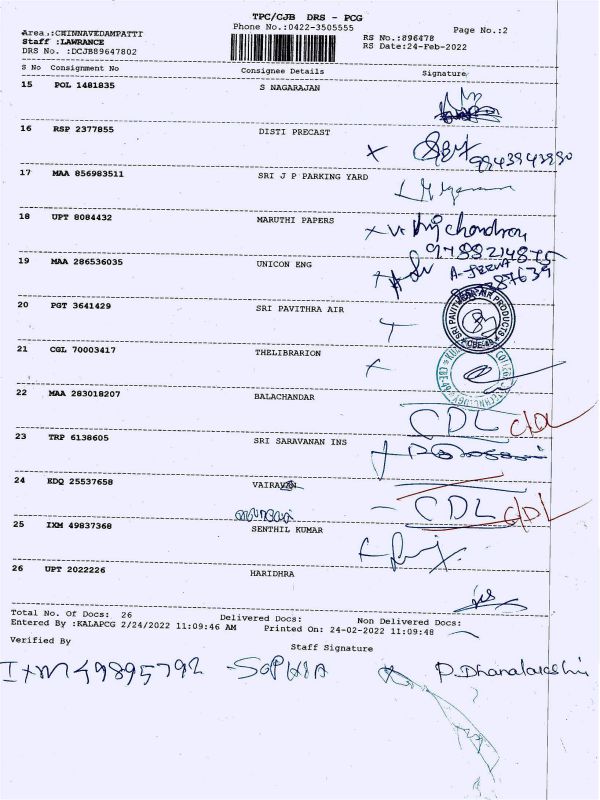 TPC/CJB DRS - PCG
Phone No.:0422-3505555 Page No.:2
Area.:CHINNAVEDAMPATTI
Staff :LAWRANCE RS No.:896478
DRS No. :DCJB89647802 RS Date:24-Feb-2022
S No Consignment No Consignee Details Signature
15 POL 1481835 S NAGARAJAN
16 RSP 2377855 DISTI PRECAST
17 MAA 856983511 SRI J P PARKING YARD
18 UPT 8084432 MARUTHI PAPERS
19 MAA 286536035 UNICON ENG
20 PGT 3641429 SRI PAVITHRA AIR
SRI PAVITHRA AIR PRODUCTS
21 CGL 70003417 THELIBRARION
22 MAA 283018207 BALACHANDAR
CDL
23 TRP 6138605 SRI SARAVANAN INS
24 EDQ 25537658 VAIRAVAN
CDL
25 IXM 49837368 SENTHIL KUMAR
26 UPT 2022226 HARIDHRA
Total No. Of Docs: 26 Delivered Docs: Non Delivered Docs:
Entered By :KALAPCG 2/24/2022 11:09:46 AM Printed On: 24-02-2022 11:09:48
Verified By Staff Signature
IXM 49895792 - SOPHIA P. Dhanalakshmi